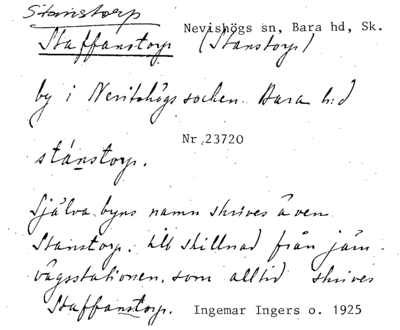 Stanstorp
Nevishögs sn, Bara hd, Sk.
Staffanstorp (Stanstorp)
by i Nevitshögs socken Bara h:d
Nr 23720
stánstorp.
Själva byns namn skrives även
Stanstorp. till skillnad från järn-
vägsstationen, som alltid skrives
Staffanstorp. Ingemar Ingers o. 1925